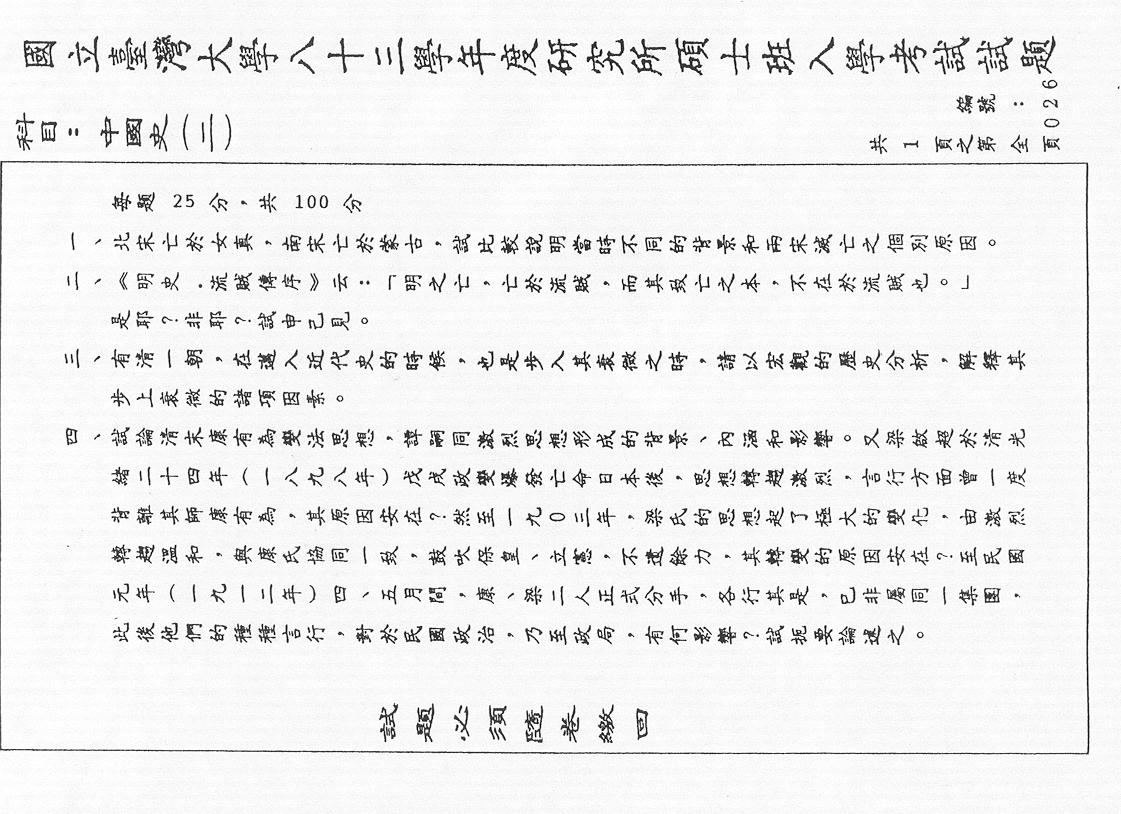 國立臺灣大學八十三學年度研究所碩士班入學考試試題
編號：026
科目：中國史(二)
共 1 頁之第 全 頁
每題 25 分，共 100 分
一、北宋亡於女真，南宋亡於蒙古，試比較說明當時不同的背景和兩宋滅亡之個別原因。
二、《明史．流賊傳序》云：「明之亡，亡於流賊，而其致亡之本，不在於流賊也。」
是耶？非耶？試申己見。
三、有清一朝，在邁入近代史的時候，也是步入其衰微之時，請以宏觀的歷史分析，解釋其
步上衰微的諸項因素。
四、試論清末康有為變法思想，譚嗣同激烈思想形成的背景、內涵和影響。又梁啟超於清光
緒二十四年(一八九八年)戊戌政變爆發亡命日本後，思想轉趨激烈，言行方面曾一度
背離其師康有為，其原因安在？然至一九０三年，梁氏的思想起了極大的變化，由激烈
轉趨溫和，與康氏協同一致，鼓吹保皇、立憲，不遺餘力，其轉變的原因安在？至民國
元年(一九一二年)四、五月間，康、梁二人正式分手，各行其是，已非屬同一集團，
此後他們的種種言行，對於民國政治，乃至政局，有何影響？試扼要論述之。
試題必須隨卷繳回